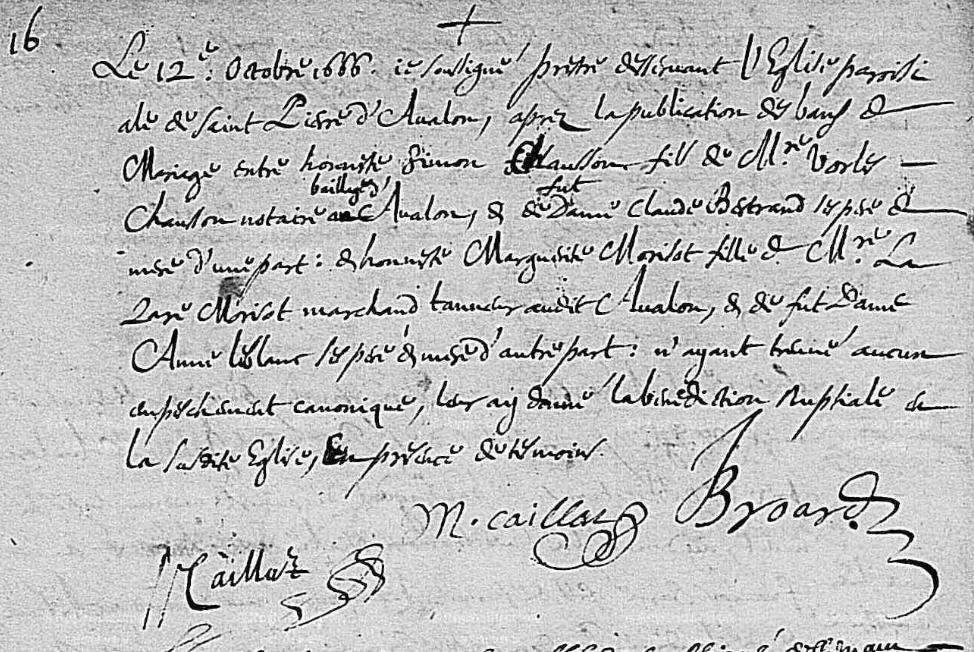 16
Le 12e. Octobre 1666. ie soussigné prêtre desservant l'Eglise paroissi
ale de saint Pierre d'Aualon, aprez la publication des bans de
Mariage entre honneste Simon Chausson fils de Mre. Vorles
bailliage d' fut
Chauson notaire au Aualon, & de Dame Claude Bertrand ses pere &
mere d'une part: & honneste Marguerite Morisot fille de Mre. La
zare Morisot marchand tanneur audit Aualon, & de fut Dame
Anne leblanc ses pere & mere d'autre part: n'ayant treuué aucun
enpechement canonique, leur ay donné la benediction nuptiale en
la susdite Eglise, En presence de temoins
M. caillat Broard
Caillat